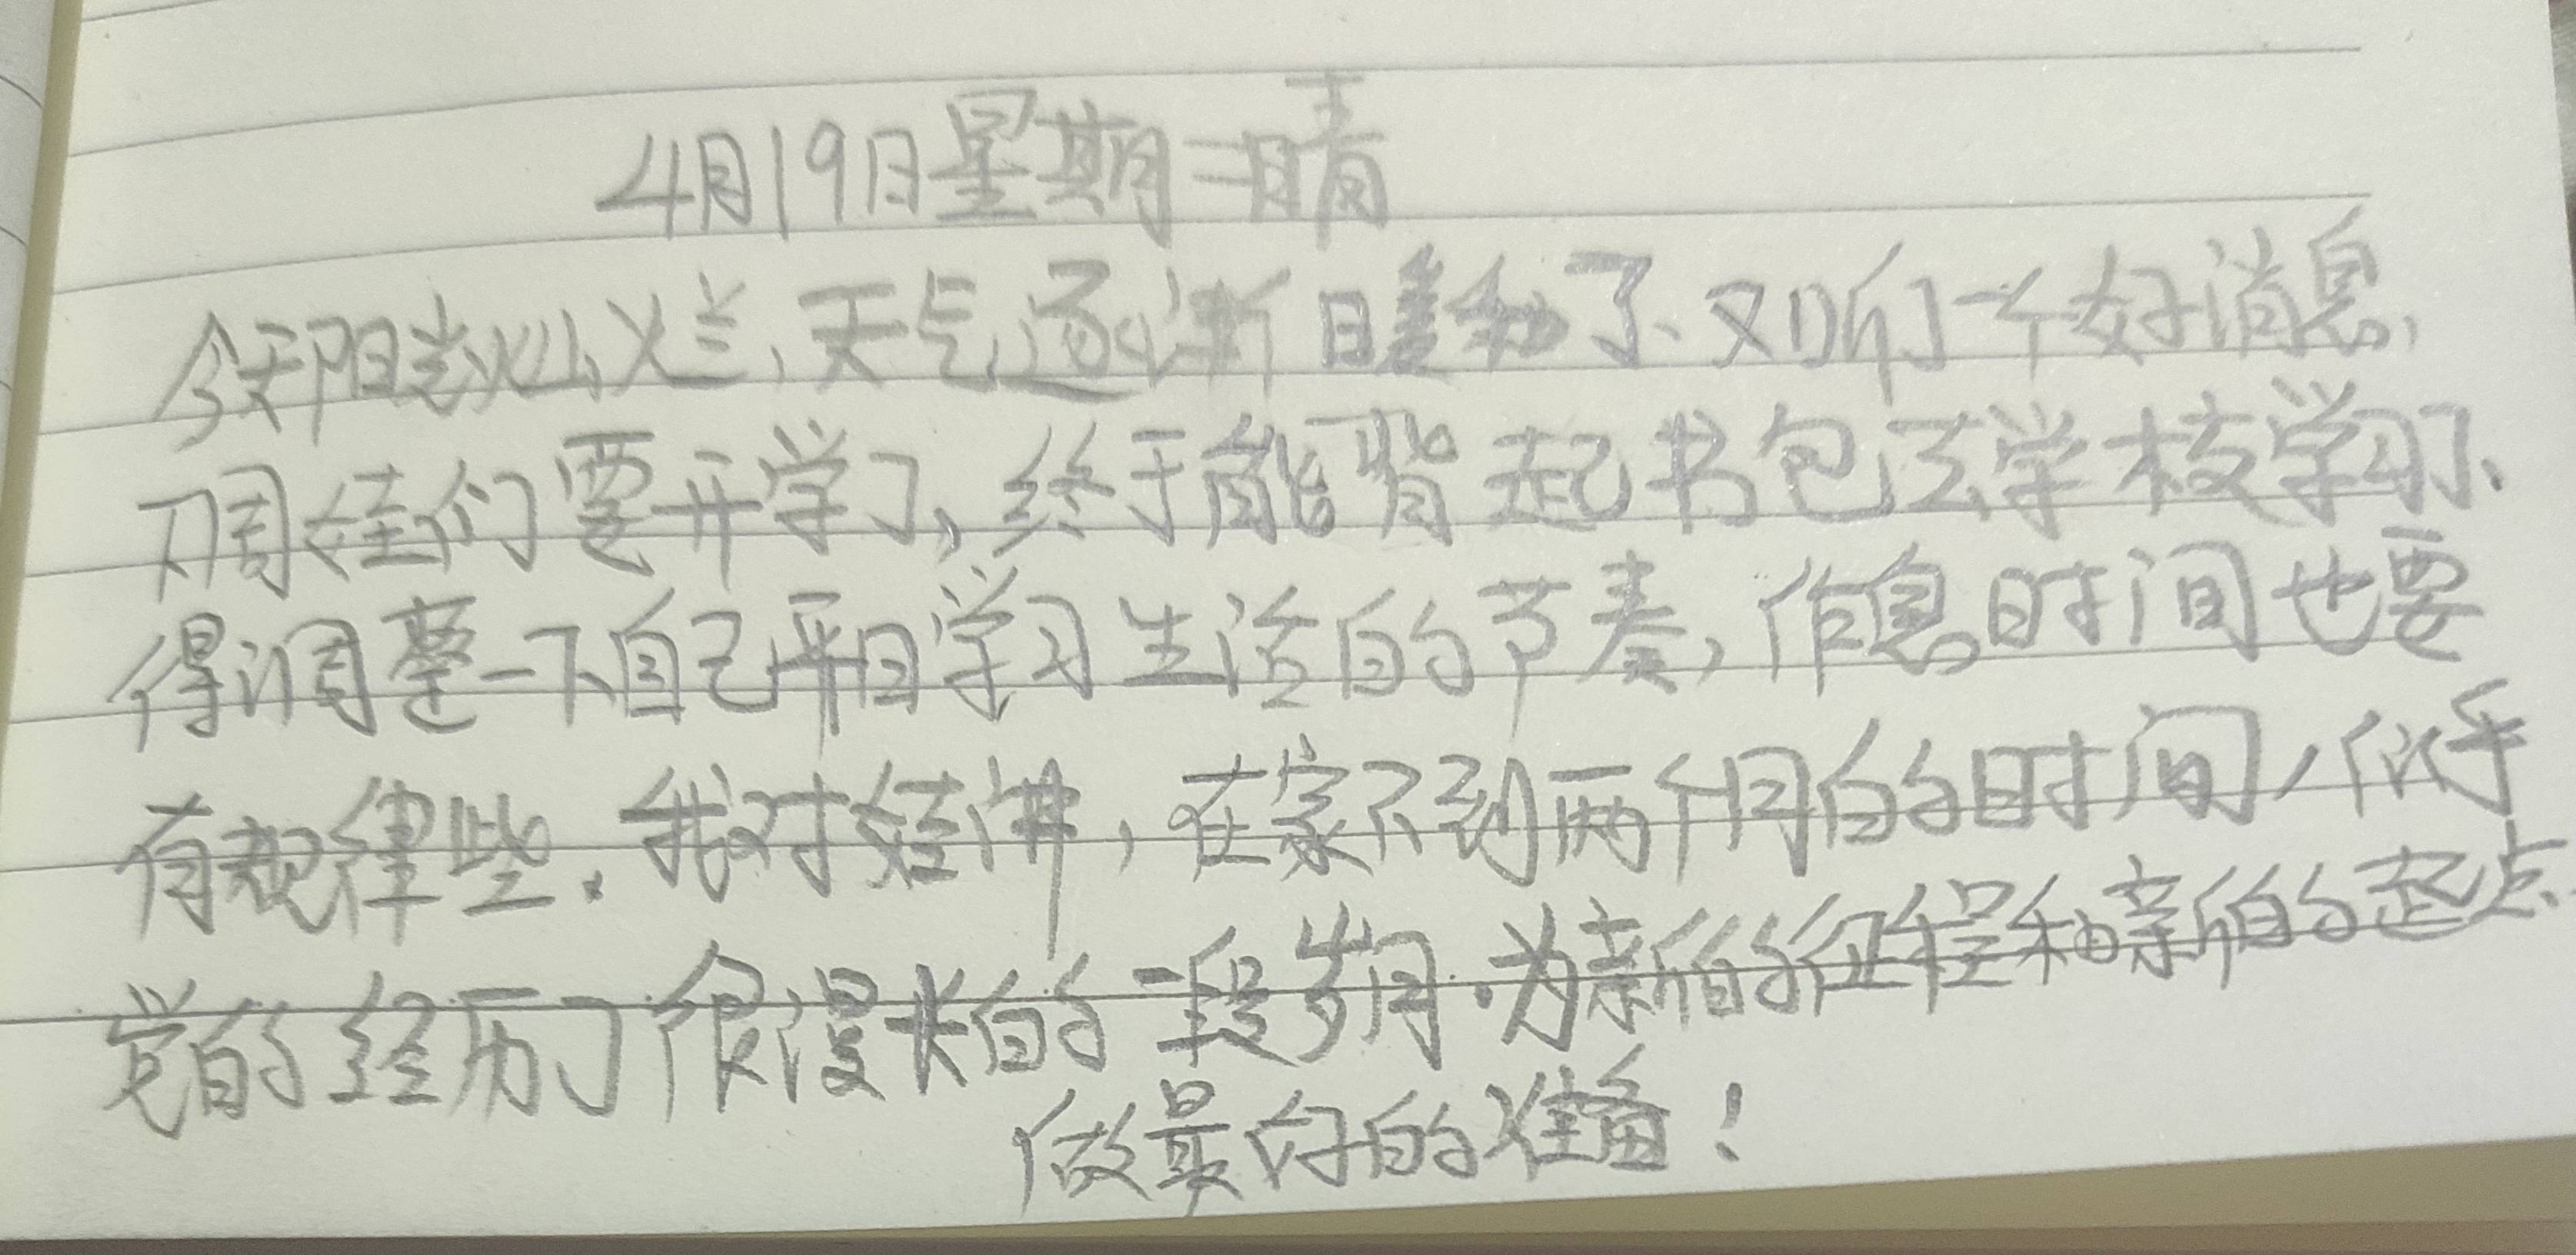 4月19日星期二晴
今天阳光灿烂,天气逐渐暖和了、又听了一个好消息,
下周娃们要开学了,终于能背起书包去学校学习、
得调整一下自己平日学习生活的节奏,作息时间也要
有规律些.我对娃讲,在家不到两个月的时间,似乎
觉的经历了很漫长的一段岁月.为新的征程和新的起点
做最好的准备!